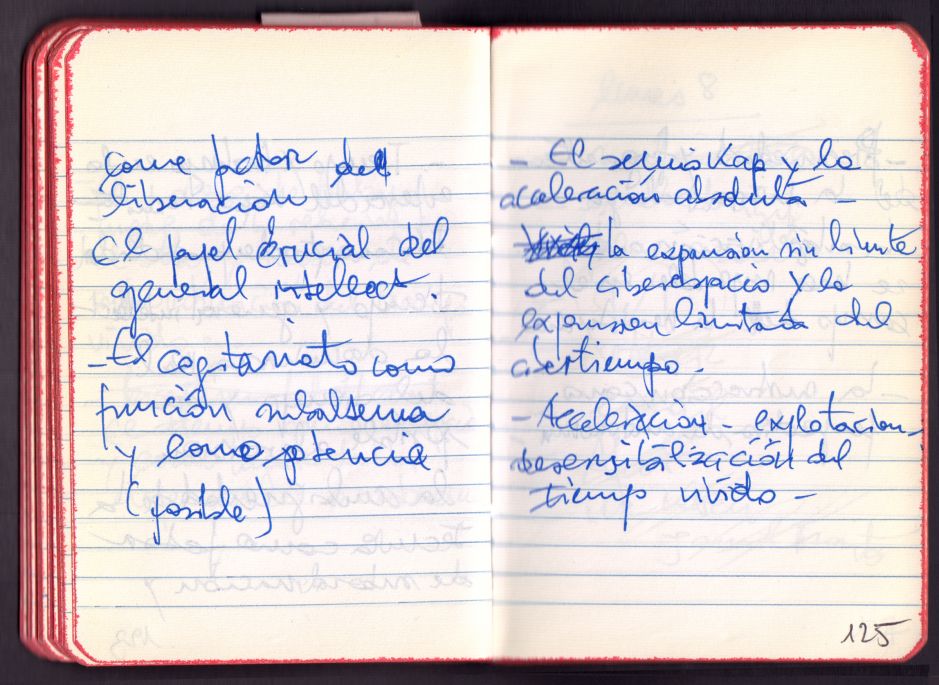 como factor de
liberación
El papel crucial del
general intellect.
- El cognitariato como
función subalterna
y como potencia
(posible)
- El semioKap y la
aceleración absoluta -
la expansión sin limite
del ciberespacio y la
expansion limitada del
cibertiempo -
- Aceleración - explotacion -
desensibilización del
tiempo vivido -
125